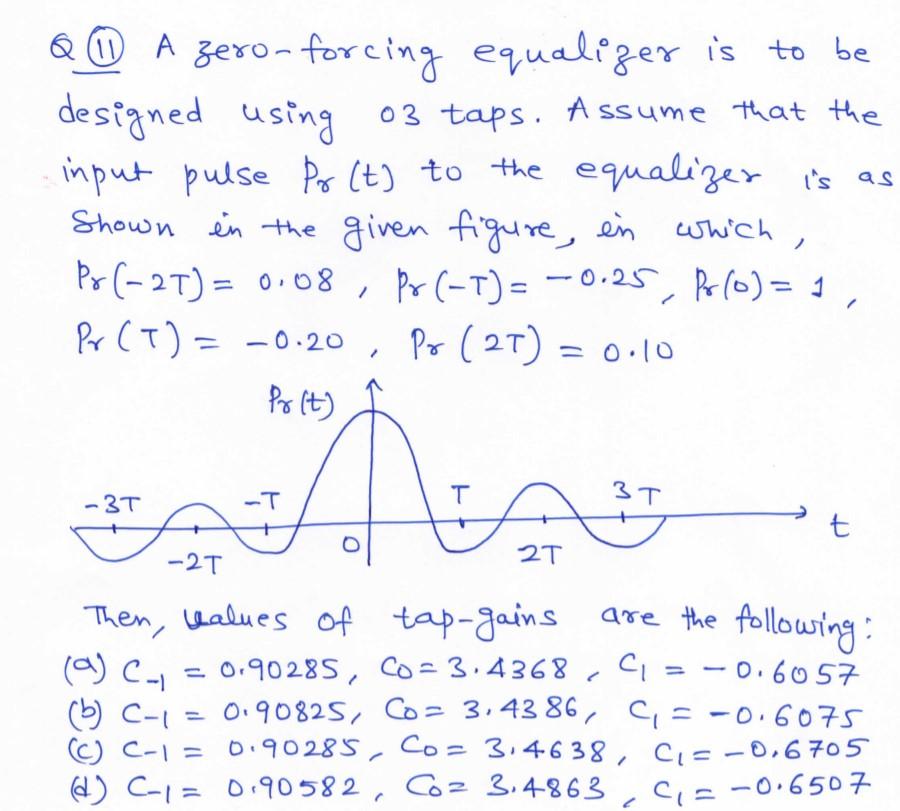 Q (11) A zero-forcing equalizer is to be
designed using 03 taps. Assume that the
input pulse Pr (t) to the equalizer is as
Shown in the given figure, in which,
Pr(-2T) = 0.08 , Pr(-T) = -0.25, Pr(0) = 1 ,
Pr (T) = -0.20 , Pr (2T) = 0.10
Pr (t)
-3T -T T 3T
t
-2T 0 2T
Then, values of tap-gains are the following:
(a) C-1 = 0.90285, C0 = 3.4368 , C1 = -0.6057
(b) C-1 = 0.90825, C0 = 3.4386, C1 = -0.6075
(c) C-1 = 0.90285, C0 = 3.4638, C1 = -0.6705
(d) C-1 = 0.90582, C0 = 3.4863, C1 = -0.6507